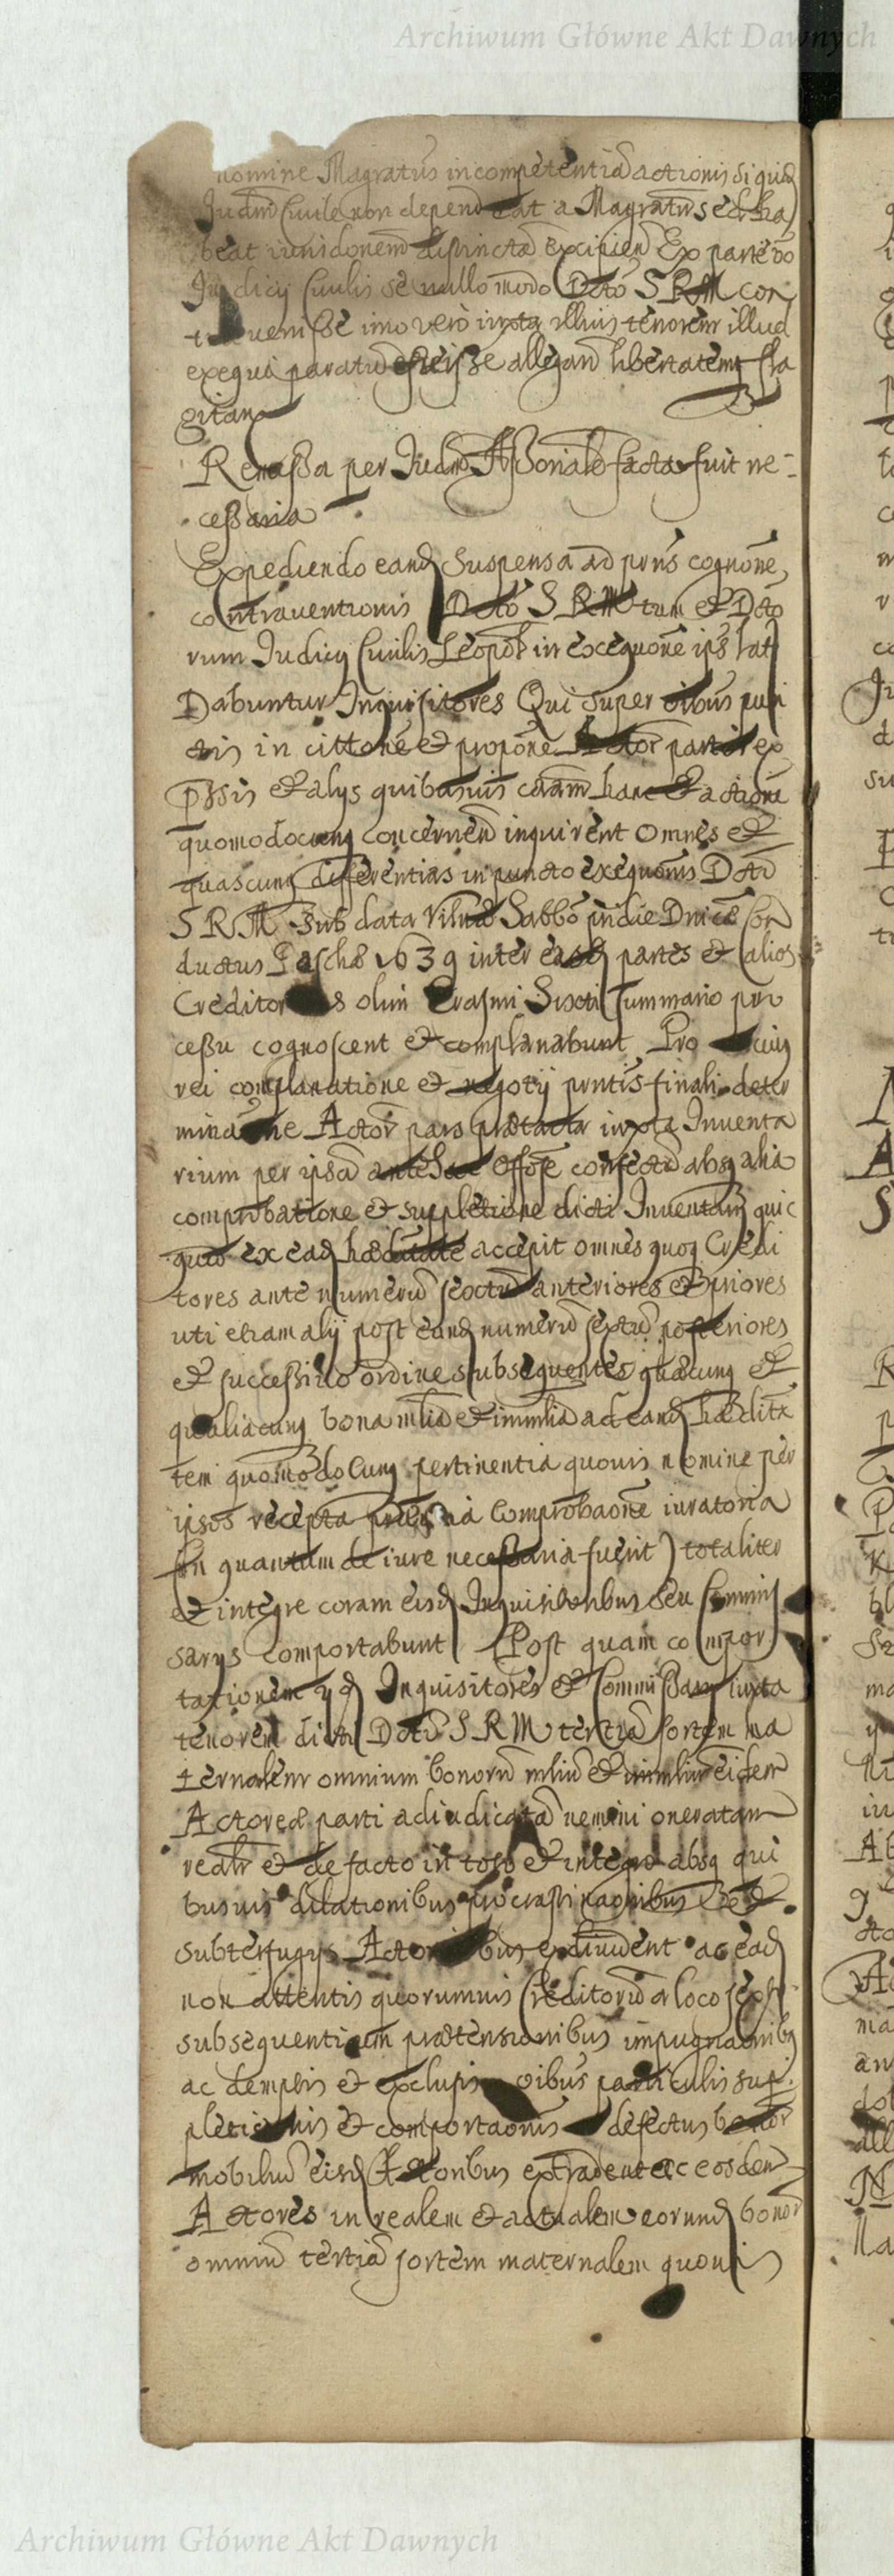 Archiwum Główne Akt Dawnych
nomine Magratus incompetentia actionis si quid
Judm Civile non dependeat a Magratu sed ha
beat iurisdonem distincta excipien Ex parte vo
Judicij Civilis se nullo modo Dcto S R M con
travenisse imo vero iuxta illius tenorem illud
exequi paratu allegan libertatem fla
gitan
Remissa per Judm facta fuit ne
cessaria
Expediendo eand suspensa ad prns cognone
contraventionis Dcto S R M tum et Dcto
rum Judicij Civilis Leopol in exequone ips lat
Dabuntur Inquisitores Qui super oibus pun
ctis in cittone et propone Actor partis ex
pssis et alys quibusvis coram hanc et actione
quomodocunq concernen inquirent Omnes et
quascunq differentias in puncto exequonis Dcti
S R M sub data Vilnae Sabbo in die Dnice Con
ductus Pascha 1639 inter easd partes et alios
Creditores olim Erasmi Sixti summario pro
cessu cognoscent et complanabunt Pro cuiq
rei complanatione et negotij prntis finali deter
minaone Actor pars praetacta iuxta Inventa
rium per ipsa confectu absq alia
comprobatione et suppletione dicti Inventarij quic
quid ex ead haeditate accepit omnes quoq Credi
tores ante numeru sextu anteriores et priores
uti etiam alij post eund numeru sextu posteriores
et successivo ordine subsequentes quaecunq et
qualiacunq bona mlia et immlia ad eand haedita
tem quomodocunq pertinentia quovis nomine per
ipsos recepta comprobaone iuratoria
(in quantum de iure necessaria fuerit) totaliter
et integre coram eisd Inquisitoribus seu Commis
sarys comportabunt Post quam compor
tationem yd Inquisitores et Commissarij iuxta
tenorem dicti Dcti S R M tertia sortem ma
ternalem omnium bonoru mliu et immliu eidem
Actorea parti adiudicata nemini oneratam
realr et de facto in toto et integro absq qui
busvis dilationibus procrastinaonibus et
subterfugys Actoribus ex divident ac ead
non attentis quorumvis Creditoru a loco sexti
subsequentium praetensionibus impugnaonibq
ac demptis et exclusis oibus particulis sup
pletionis et comportaonis defectus bonor
mobiliu eisd Actoribus extradent ac eosdem
Actores in realem et actualem eorund bonor
omniu tertia sortem maternalem quovis
Archiwum Główne Akt Dawnych